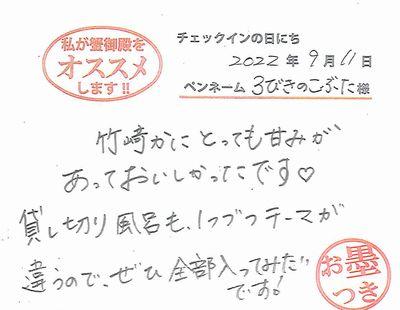 私が蟹御殿を
オススメ
します!!
チェックインの日にち
2022年9月11日
ペンネーム 3びきのこぶた様
竹崎かに とっても甘みが
あっておいしかったです♡
貸し切り風呂も、1つづつテーマが
違うので、ぜひ全部入ってみたい
です!
お墨
つき